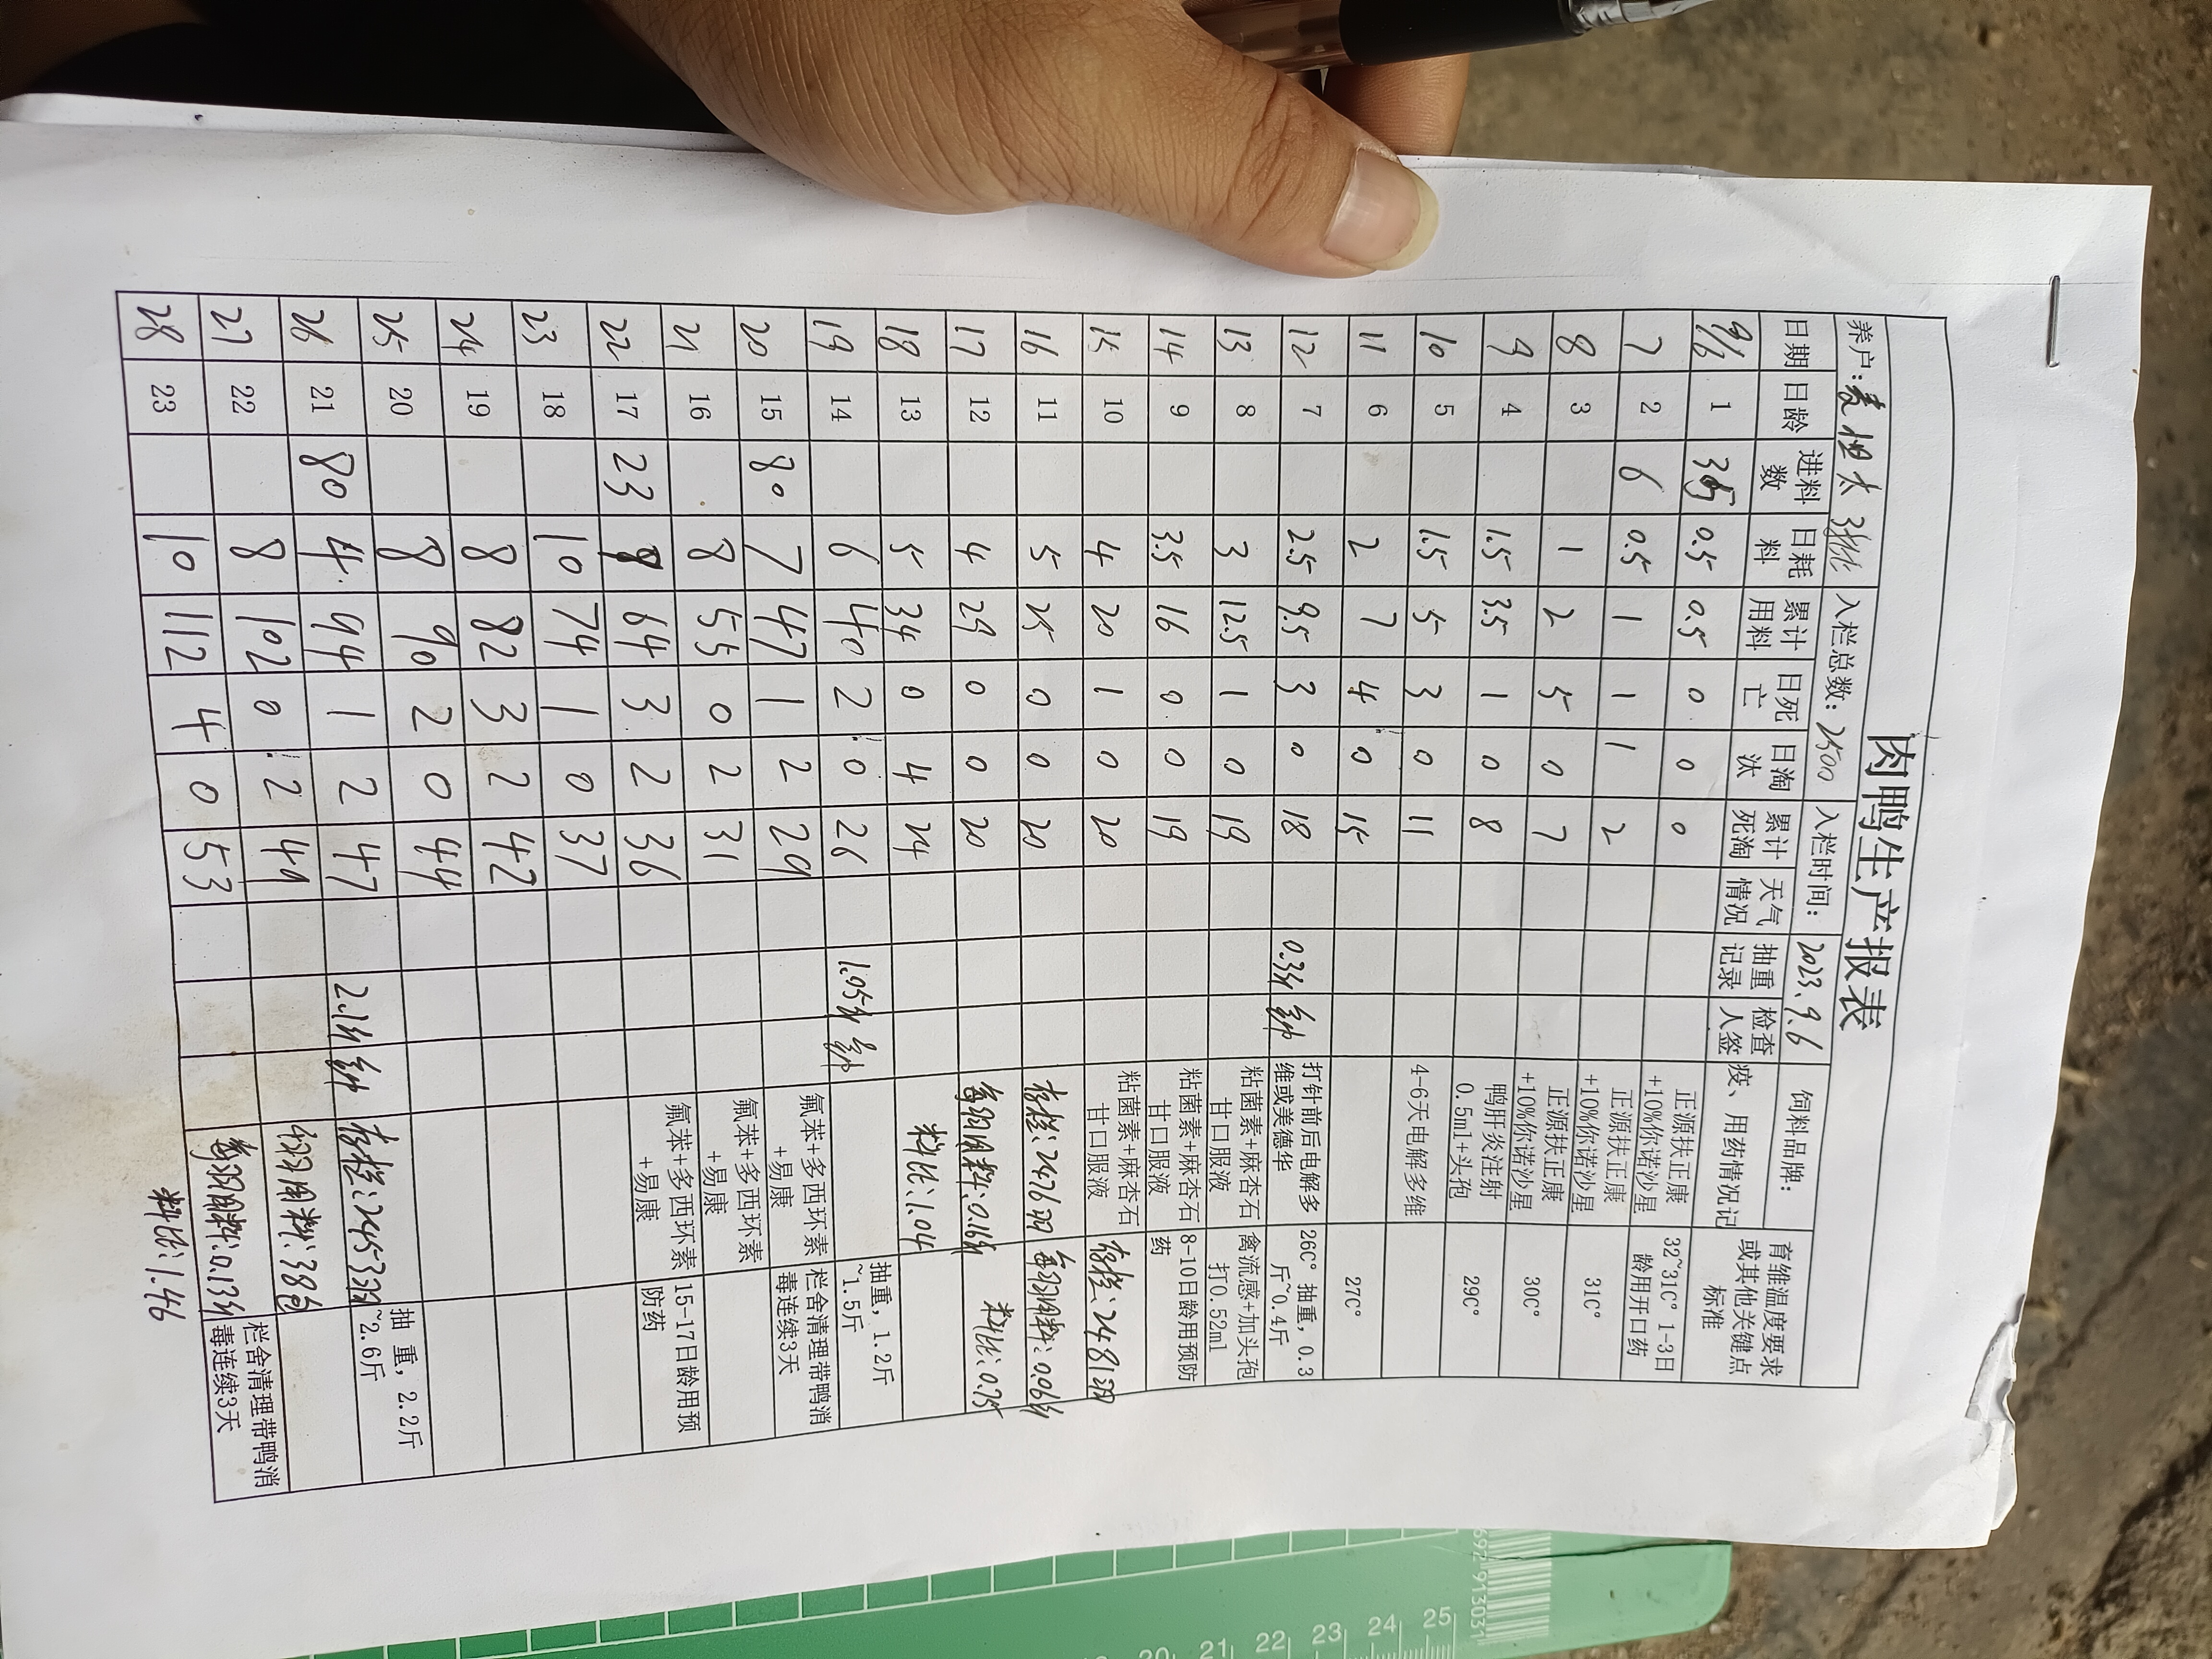 肉鸭生产报表
养户: 太 3批 入栏总数: 2500 入栏时间: 2023.9.6 饲料品牌:
日期 日龄 进料数 日耗料 累计用料 日死亡 日淘汰 累计死淘 天气情况 抽重记录 检查人签 疫、用药情况记 育雏温度要求或其他关键点标准
9/6 1 0.5 0.5 0 0 0 正源扶正康+10%你诺沙星 32~31C° 1-3日龄用开口药
7 2 6 0.5 1 1 1 2 正源扶正康+10%你诺沙星
8 3 1 2 5 0 7 正源扶正康+10%你诺沙星 31C°
9 4 1.5 3.5 1 0 8 鸭肝炎注射0.5ml+头孢 30C°
10 5 1.5 5 3 0 11 4-6天电解多维 29C°
11 6 2 7 4 0 15 27C°
12 7 2.5 9.5 3 0 18 0.3斤 打针前后电解多维或美德华 26C° 抽重，0.3斤~0.4斤
13 8 3 12.5 1 0 19 粘菌素+麻杏石甘口服液 禽流感+加头孢打0.52ml
14 9 3.5 16 0 0 19 粘菌素+麻杏石甘口服液 8-10日龄用预防药
15 10 4 20 1 0 20 粘菌素+麻杏石甘口服液 存栏:2481羽
16 11 5 25 0 0 20 存栏:2476羽 每羽用料:0.06斤
17 12 4 29 0 0 20 每羽用料:0.16斤 料比:0.75
18 13 5 34 0 4 24 料比:1.04
19 14 6 40 2 0 26 1.05斤 抽重，1.2斤~1.5斤
20 15 80 7 47 1 2 29 氟苯+多西环素+易康 栏舍清理带鸭消毒连续3天
21 16 8 55 0 2 31 氟苯+多西环素+易康
22 17 23 9 64 3 2 36 氟苯+多西环素+易康 15-17日龄用预防药
23 18 10 74 1 0 37
24 19 8 82 3 2 42
25 20 8 90 2 0 44
26 21 80 4 94 1 2 47 2.1斤 存栏:2453羽 抽 重，2.2斤~2.6斤
27 22 8 102 0 2 49 用料:38包
28 23 10 112 4 0 53 每羽用料:0.13斤 栏舍清理带鸭消毒连续3天
料比:1.46
20 21 22 23 24 25